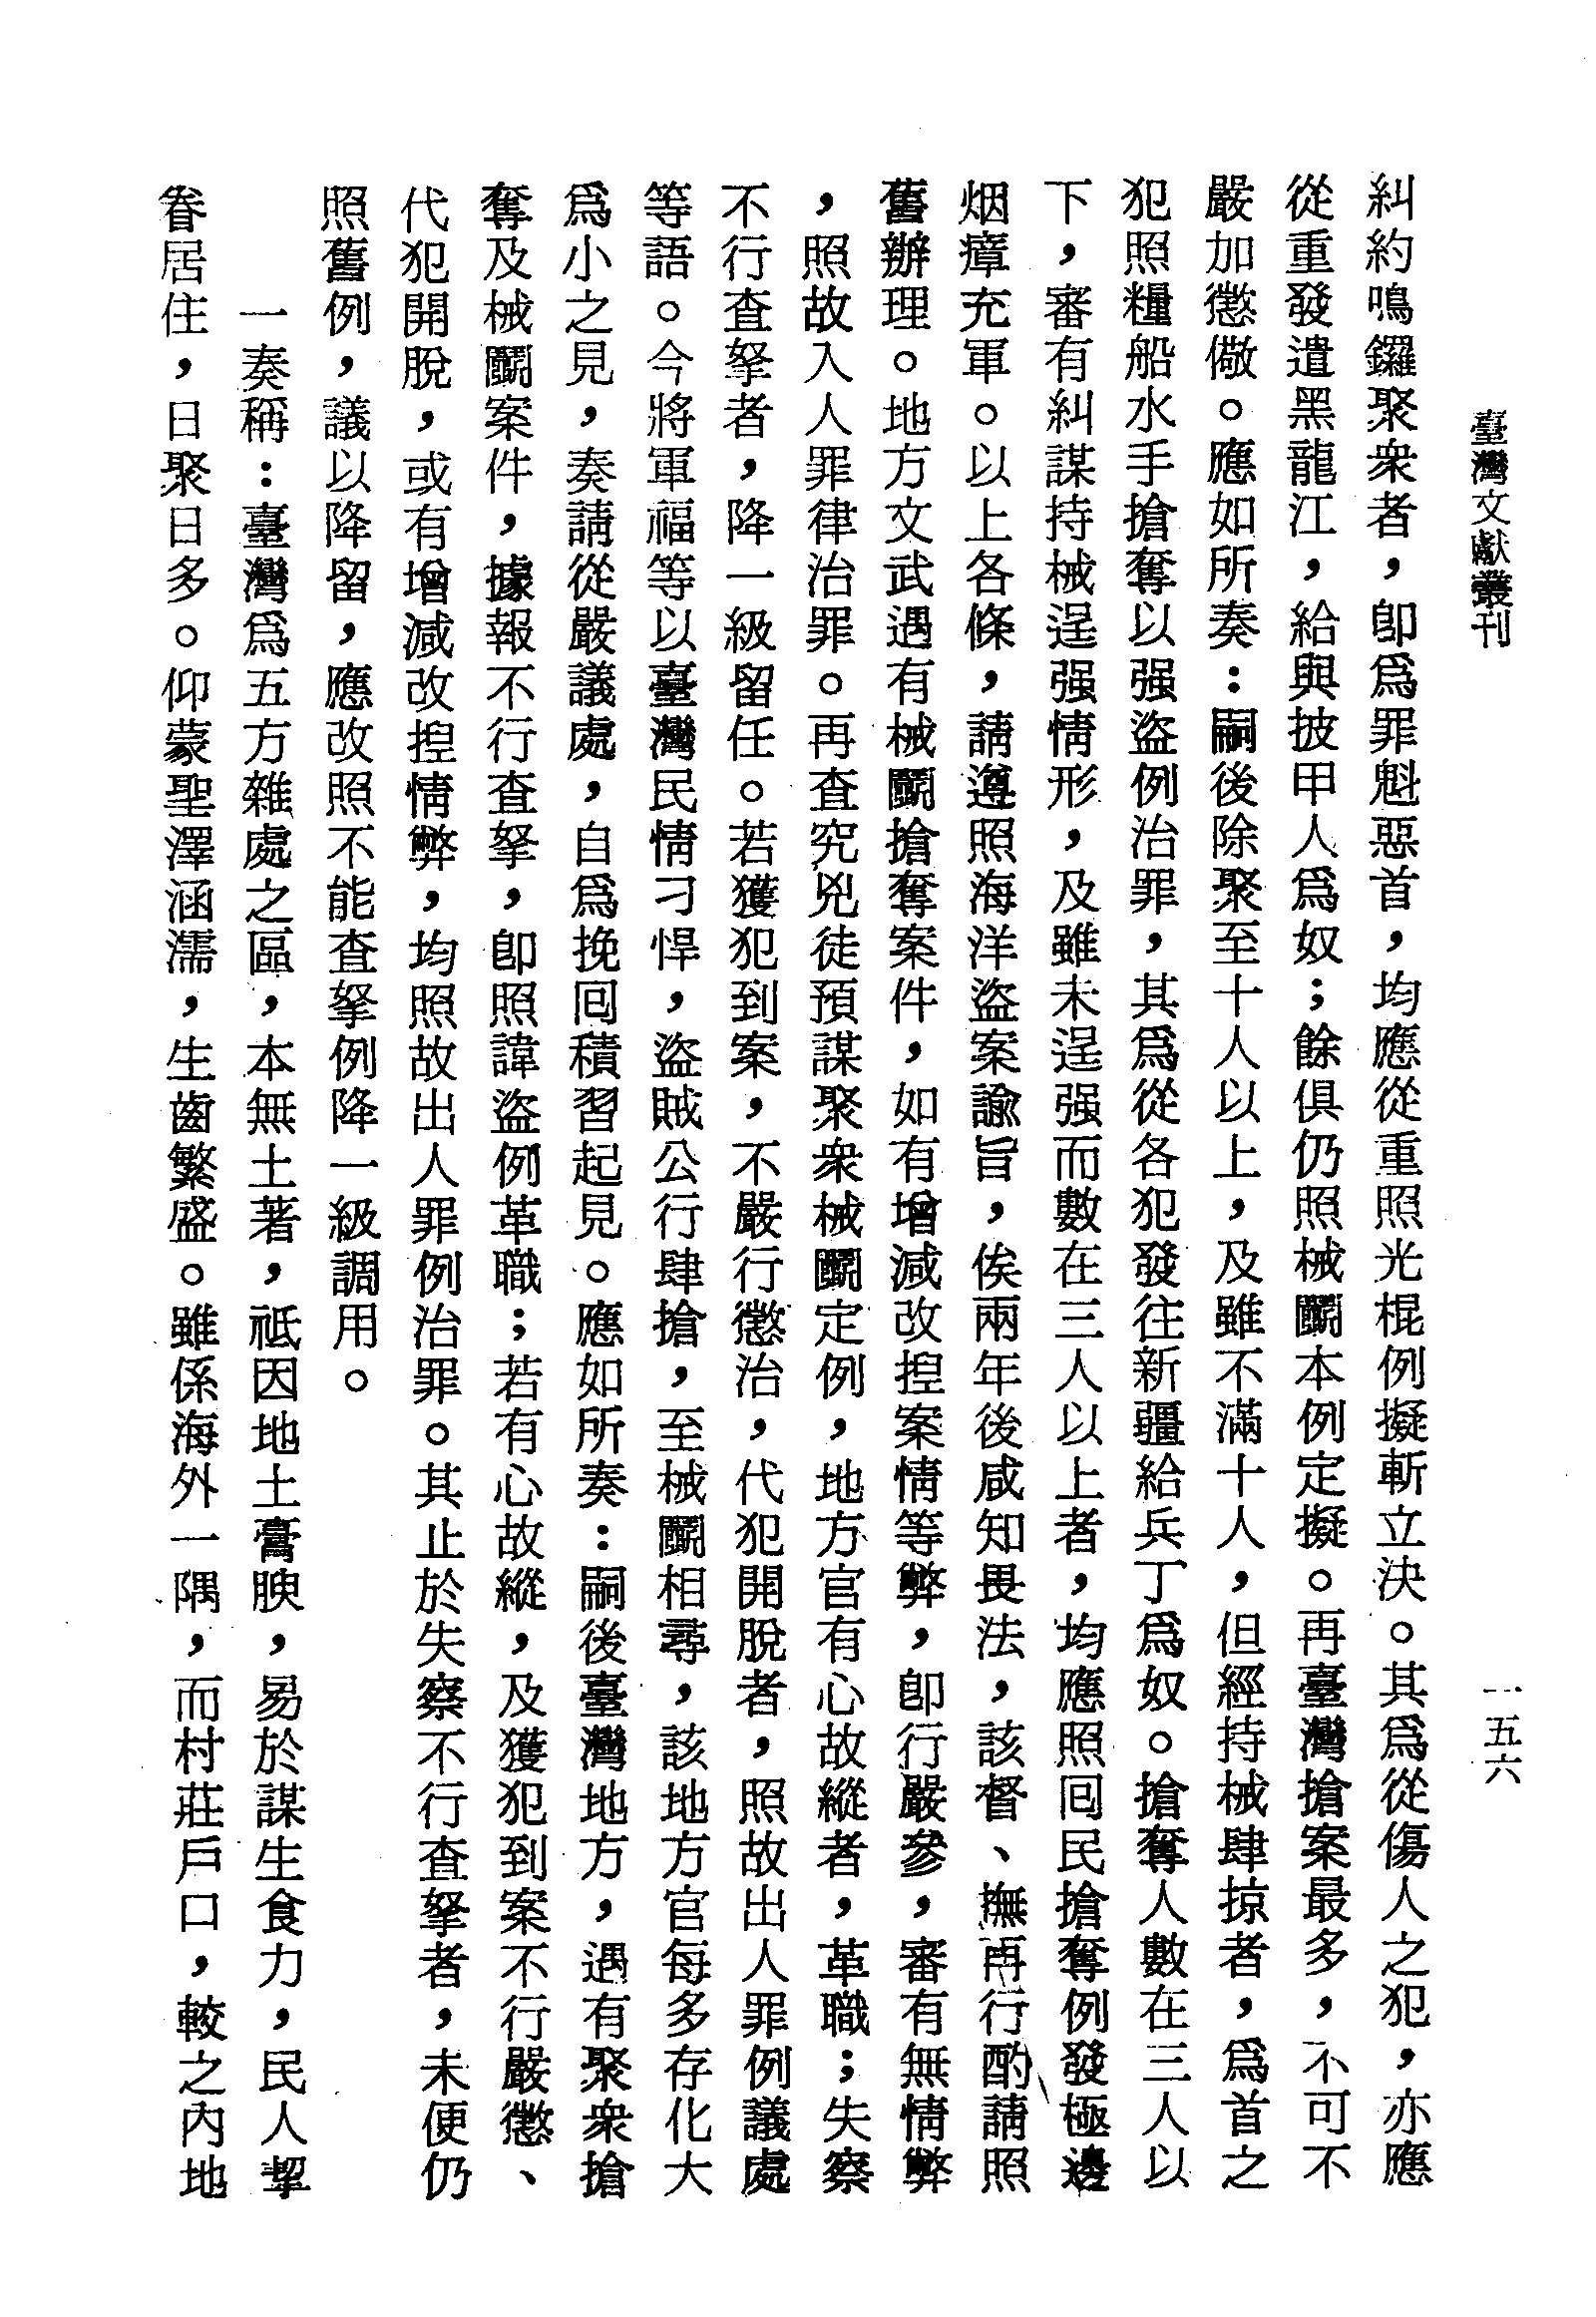 臺灣文獻叢刊
一五六
糾約鳴鑼聚衆者，卽爲罪魁惡首，均應從重照光棍例擬斬立決。其爲從傷人之犯，亦應
從重發遣黑龍江，給與披甲人爲奴；餘俱仍照械鬭本例定擬。再臺灣搶案最多，不可不
嚴加懲儆。應如所奏：嗣後除聚至十人以上，及雖不滿十人，但經持械肆掠者，爲首之
犯照糧船水手搶奪以强盜例治罪，其爲從各犯發往新疆給兵丁爲奴。搶奪人數在三人以
下，審有糾謀持械逞强情形，及雖未逞强而數在三人以上者，均應照囘民搶奪例發極邊
烟瘴充軍。以上各條，請遵照海洋盜案諭旨，俟兩年後咸知畏法，該督、撫再行酌請照
舊辦理。地方文武遇有械鬭搶奪案件，如有增減改揑案情等弊，卽行嚴參，審有無情弊
，照故入人罪律治罪。再查究兇徒預謀聚衆械鬭定例，地方官有心故縱者，革職；失察
不行查拏者，降一級留任。若獲犯到案，不嚴行懲治，代犯開脫者，照故出人罪例議處
等語。今將軍福等以臺灣民情刁悍，盜賊公行肆搶，至械鬭相尋，該地方官每多存化大
爲小之見，奏請從嚴議處，自爲挽囘積習起見。應如所奏：嗣後臺灣地方，遇有聚衆搶
奪及械鬭案件，據報不行查拏，卽照諱盜例革職；若有心故縱，及獲犯到案不行嚴懲、
代犯開脫，或有增減改揑情弊，均照故出人罪例治罪。其止於失察不行查拏者，未便仍
照舊例，議以降留，應改照不能查拏例降一級調用。
一奏稱：臺灣爲五方雜處之區，本無土著，祗因地土膏腴，易於謀生食力，民人挈
眷居住，日聚日多。仰蒙聖澤涵濡，生齒繁盛。雖係海外一隅，而村莊戶口，較之內地